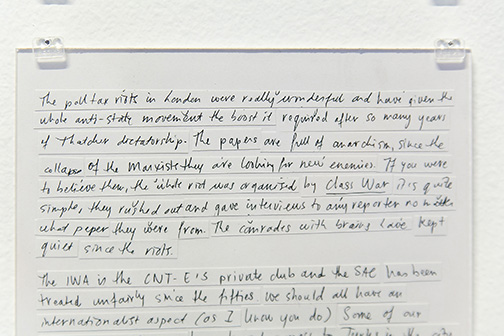 The poll tax riots in London were really wonderful and have given the
whole anti-state movement the boost it required after so many years
of Thatcher dictatorship. The papers are full of anarchism, since the
collapse of the Marxists they are looking for new enemies. If you were
to believe them, the whole riot was organised by Class War it is quite
simple, they rushed out and gave interviews to any reporter no matter
what paper they were from. The comrades with brains have kept
quiet since the riots.
The IWA is the CNT-E'S private club and the SAC has been
treated unfairly since the fifties. We should all have an
internationalist aspect (as I know you do) Some of our